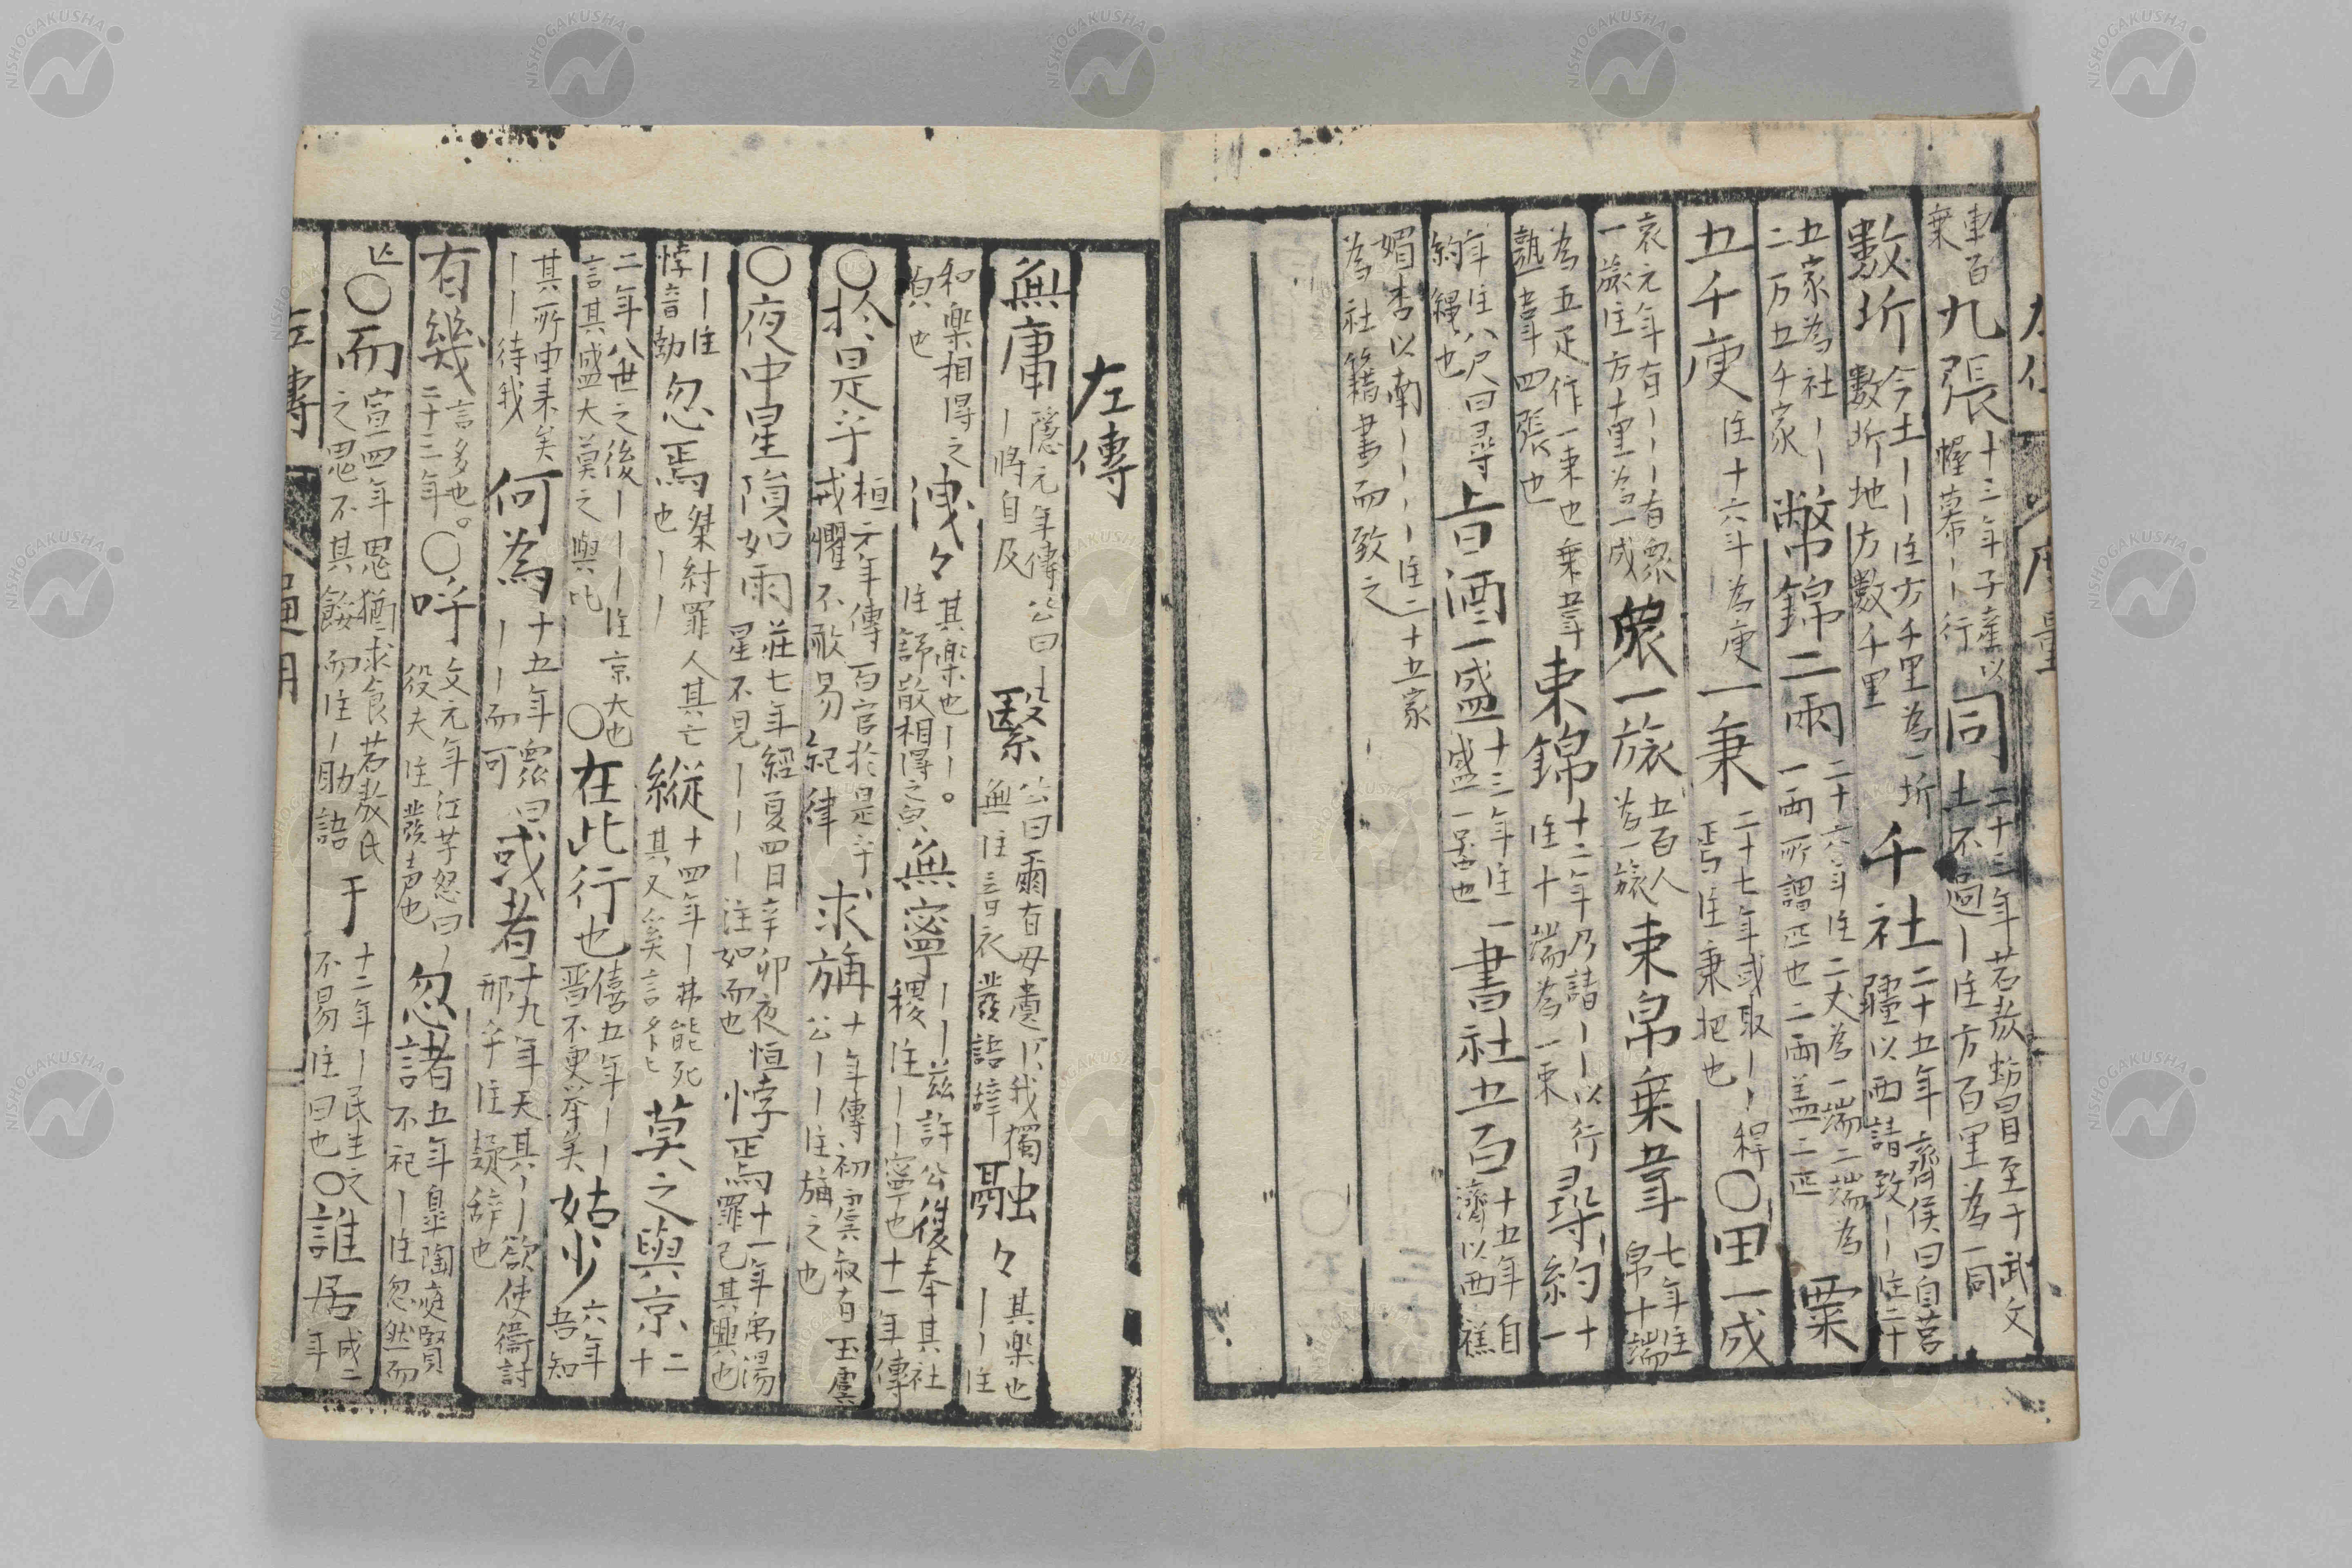 車百乗 九張 十三年子産以幄幕丨丨行 同 二十三年若敖蚡冒至于武文土不過丨注方百里為一同
數圻 今土丨丨注方千里為一圻數圻地方數千里 千社 二十五年齊侯曰自莒疆以西請致丨丨注二十
五家為社丨丨二万五千家 幣錦二兩 二十六年注二丈為一端二端為一兩所謂匹也二兩盖二匹 粟
五千庾 注十六斗為庾 一秉 二十七年或取丨丨秆焉注秉把也 ○田一成
哀元年有丨丨丨有衆一旅注方十里為一成 衆一旅 五百人為一旅 束帛乗韋 七年注帛十端
為五疋作一束也乗韋熟韋四張也 束錦 十二年乃請丨丨以行注十端為一束 尋約 十一
年注八尺曰尋約繩也 旨酒一盛 十三年注一盛一器也 書社五百 十五年自濟以西禚
媚杏以南丨丨丨丨注二十五家為社籍書而致之
左傳
無庸 隱元年傳公曰丨丨將自及 繄 公曰爾有母遺丨我獨無注言衣發語辞 融々 其樂也丨丨注
和樂相得之皃也 洩々 其樂也丨丨。注舒散相得之皃 無寧 丨丨茲許公復奉其社稷注丨丨寧也十一年傳
○於是乎 桓元年傳百官於是乎戒懼不敢易紀律 求旃 十年傳初虞叔有玉虞公丨丨注旃之也
○夜中星隕如雨 莊七年經夏四日辛卯夜恒星不見丨丨丨丨注如而也 悖焉 十一年禹湯罪己其興也
丨丨注悖音勃 忽焉 桀紂罪人其亡也丨丨 縦 十四年丨弗能死其又奚言 莫之與京 二十
二年八世之後丨丨丨丨注京大也言其盛大莫之與比 ○在此行也 僖五年丨丨丨晋不更举矣 姑少 六年吾知
其所由来矣丨丨待我 何為 十五年衆曰丨丨而可 或者 十九年天其丨丨欲使衛討邢乎注疑辞也
有幾 言多也。二十三年 ○呼 文元年江芊怒曰丨役夫注發声也 忽諸 五年臯陶庭堅不祀丨注忽然而
亡 ○而 宣四年思猶求食若敖氏之思不其餒而注丨助語 于 十二年丨民生之不易注曰也 ○誰居 成二年
左傳